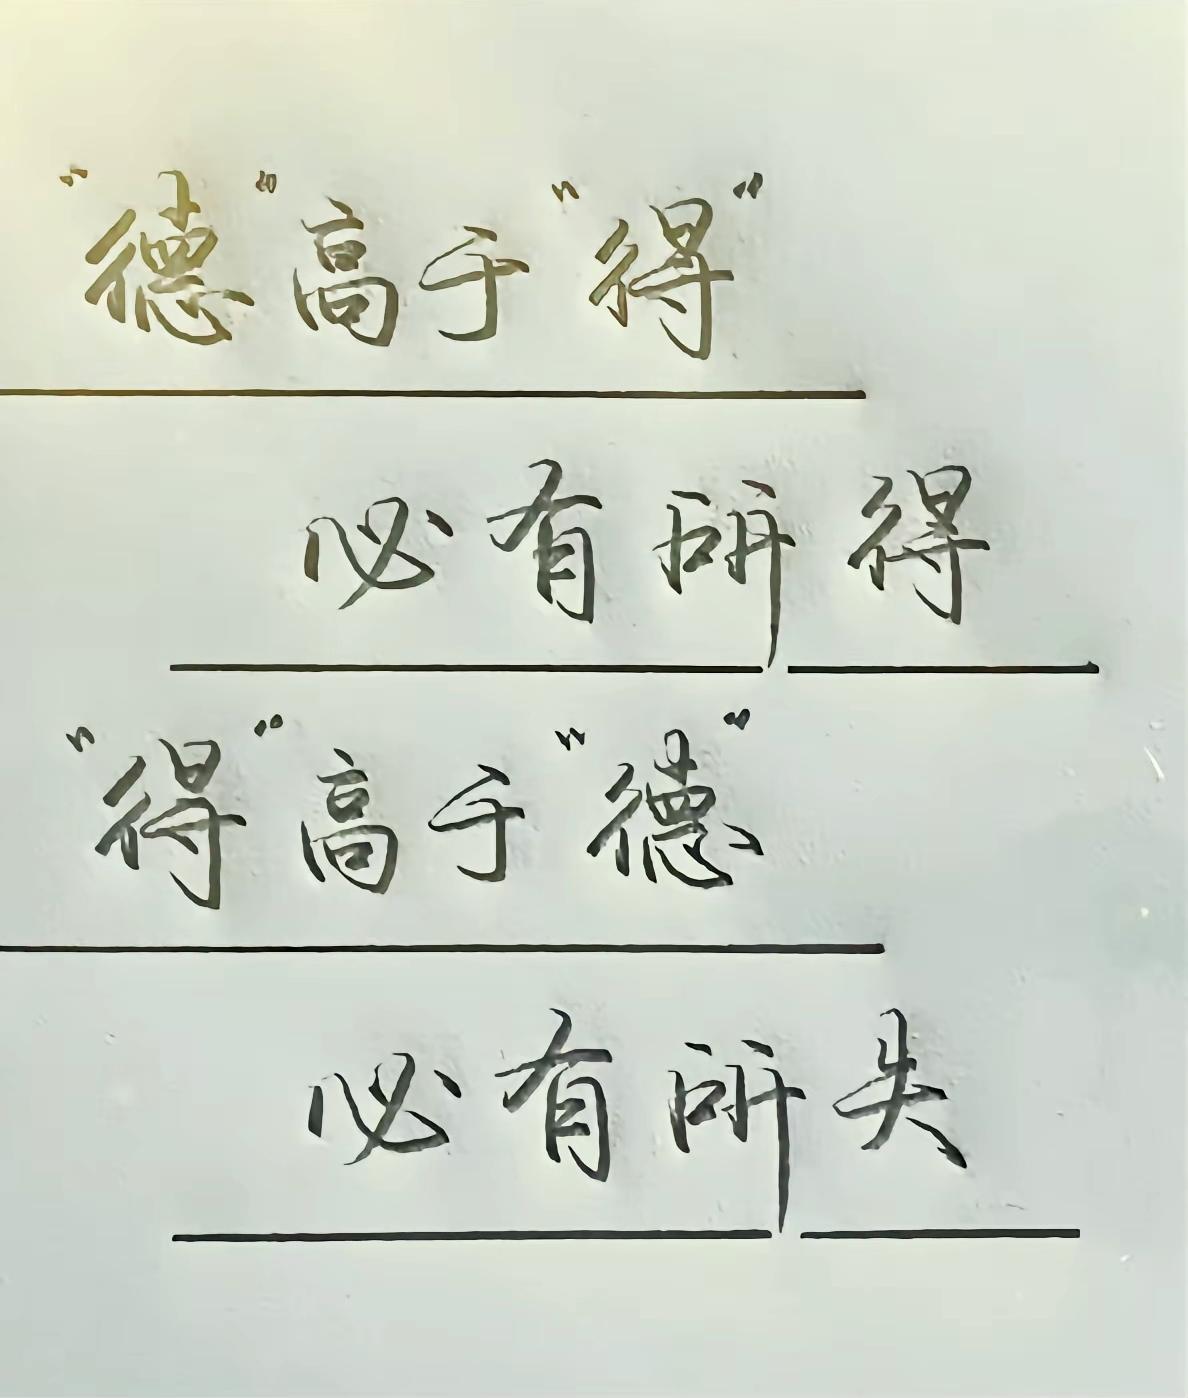 “德”高于“得”
必有所得
“得”高于“德”
必有所失